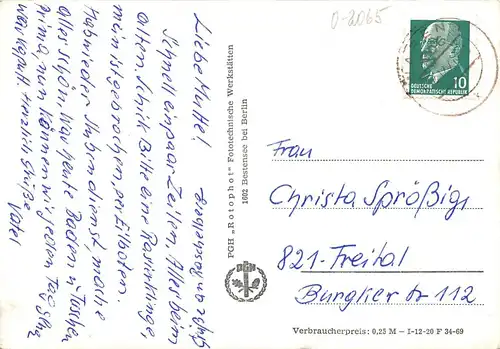 0-2065
DEUTSCHE
DEMOKRATISCHE REPUBLIK
10
Liebe Muttel,
Schnell ein paar Zeilen. Alles beim
alten. Schick Bitte eine Rasierklinge,
mein ist gebrochen per Eilboten.
Hab wieder Stubendienst, mache
alles schön. War heute Baden u. Tischer
prima, nun können wir jeden Tag
war kaputt. Herzlich Grüße
Vatel
PGH „Rotophot“ Fototechnische Werkstätten
1602 Bestensee bei Berlin
PGH
Frau
Christa Sprößig
821-Freital
Burgker Str 112
Verbraucherpreis: 0,25 M – I-12-20 F 34-69